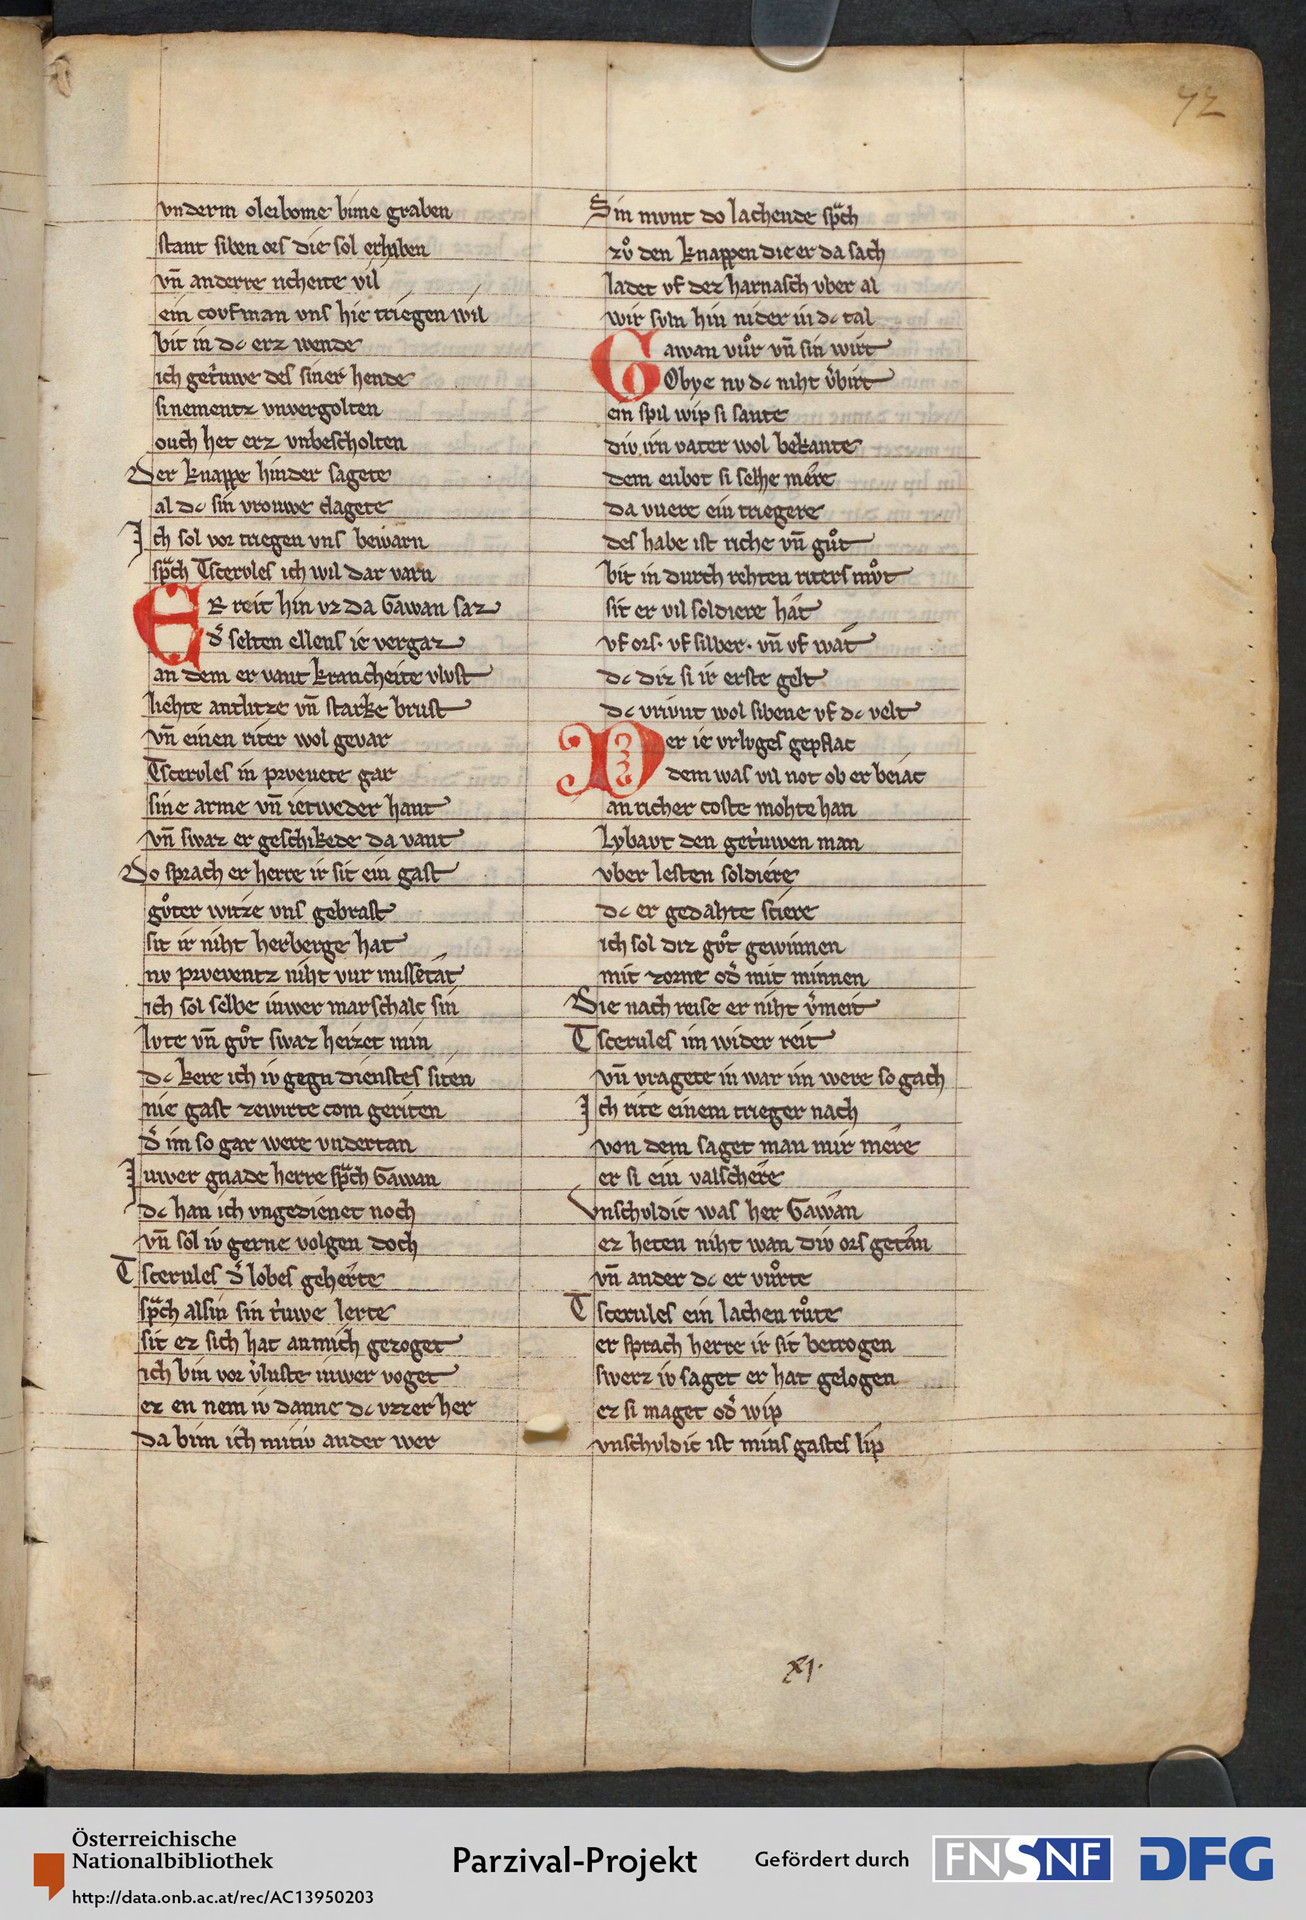 72
vnderm oleibome bime graben
stant siben ors die sol erhaben
vn̄ anderre richeite vil
ein covfman vns hie triegen wil
bit in dc erz wende
ich getruwe des siner hende
si nementz vnvergolten
ouch het erz vnbescholten
Der knappe hinder sagete
al dc sin vrouwe clagete
Ich sol vor triegen vns bewarn
sp̄ch Tscervles ich wil dar varn
ER reit hin vz da Gawan saz
d̾ selten ellens ie vergaz
an dem er vant krancheite vlvst
liehte antlitze vn̄ starke brust
vn̄ einen riter wol gevar
Tscervles in prveuete gar
sine arme vn̄ ietweder hant
vn̄ swaz er geschikede da vant
Do sprach er herre ir sit ein gast
gvͦter witze vns gebrast
sit ir niht herberge hat
nv prveventz niht vur missetat
ich sol selbe iuwer marschalc sin
lvte vn̄ gvͦt swaz heizet min
dc kere ich iv gegn dienstes siten
nie gast zewirte com geriten
d̾ im so gar were vndertan
Iuwer gnade herre sp̄ch Gawan
dc han ich vngedienet noch
vn̄ sol iv gerne volgen doch
Tscerules d̾ lobes geherte
sp̄ch alsin sin truwe lerte
sit ez sich hat anmich gezoget
ich bin vor v̾luste iuwer voget
ez en nem iv danne dc vzzer her
da bim ich mitiv ander wer
Sin mvnt do lachende sp̄ch
zvͦ den knappen die er da sach
ladet vf dez harnasch vber al
wir svln hin nider in dc tal
Gawan vuͦr vn̄ sin wirt
Obye nv dc niht v̾birt
ein spil wip si sante
div irn vater wol bekante
dem enbot si selhe mere
da vuere ein triegere
des habe ist riche vn̄ guͦt
bit in durch rehten riters mvͦt
sit er vil soldiere hat
vf ors · vf silber · vn̄ vf wat
dc diz si ir erste gelt
dc vrivnt wol sibene vf dc velt
Der ie vrlvges gepflac
dem was vil not ob er beiac
an richer coste mohte han
Lybavt den getruwen man
vber lesten soldiere
dc er gedahte sciere
ich sol diz gvͦt gewinnen
mit zorne od̾ mit minnen
Die nach reise er niht v̾meit
Tscerules im wider reit
vn̄ vragete in war im were so gach
Ich rite einem trieger nach
von dem saget man mir mere
er si ein valschere
Vnschvldic was her Gawan
ez heten niht wan div ors getan
vn̄ ander dc er vuͦrte
Tscerules ein lachen ruͦte
er sprach herre ir sit betrogen
swerz iv saget er hat gelogen
ez si maget od̾ wip
vnschvldic ist mins gastes lip
xj.
Österreichische
Nationalbibliothek
http://data.onb.ac.at/rec/AC13950203
Parzival-Projekt
Gefördert durch
FNSNF
DFG